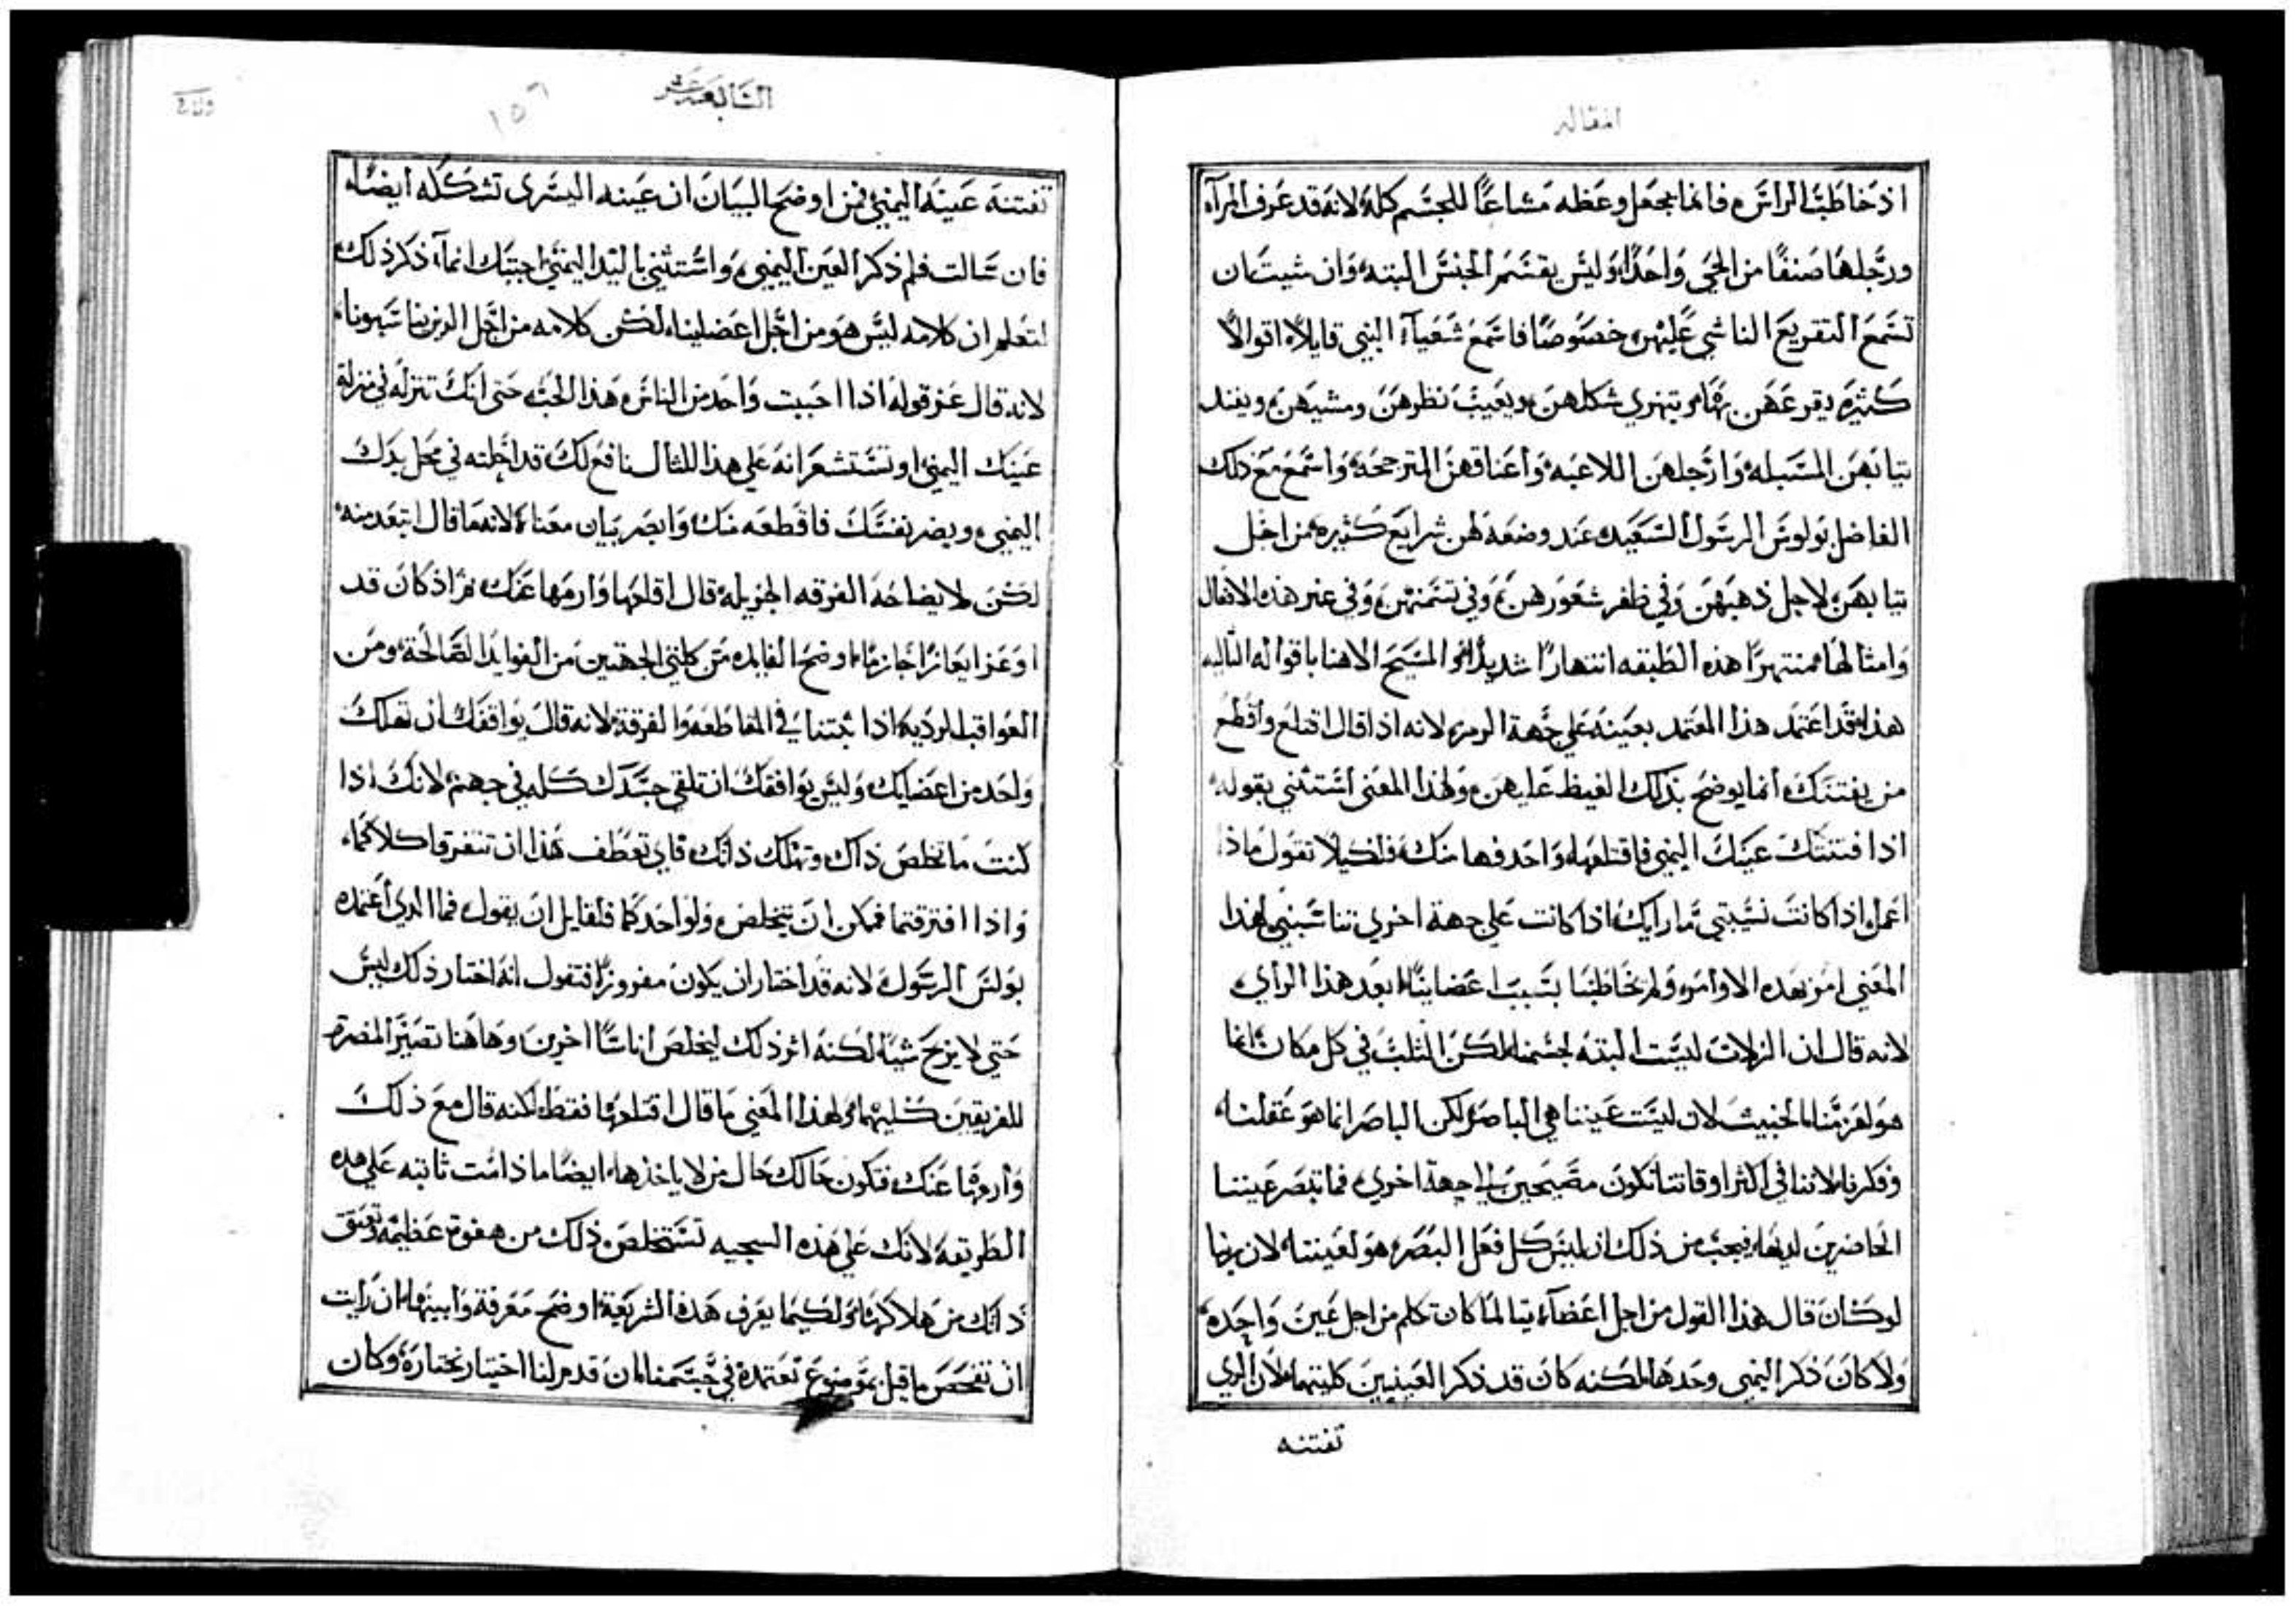 المقاله
اذ خاطبت الراس فانما يجعل وعظه مشاعًا للجسم كله لانه قد عرف المرآه
ورجلها صنفًا من الحي واحدًا وليس يقسم الجنس البته وان شيت ان
تسمع التقريع الناشي عليهن خصوصًا فاسمع شعيآ النبي قايلاً اقوالاً
كثيره يقرعهن بها ويتهزي شكلهن ويعيب نظرهن ومشيهن ويفند
ثيابهن المسبله وارجلهن اللاعبه واعناقهن المترجحه واسمع مع ذلك
الفاضل بولوس الرسول السعيد عند وضعه لهن شرايع كثيره من اجل
ثيابهن لاجل ذهبهن وفي ظفر شعورهن وفي تسمنهن وفي غير هذه الافعال
وامثالها منتهرًا هذه الطبقه انتهارًا شديدًا والمسيح الاهنا باقواله التاليه
هذا فقد اعتمد هذا المعتمد بعينه علي جهة الرمز لانه اذا قال اقتلع واقطع
من يفتنك انما يوضح بذلك الغيظ عليهن ولهذا المعني استثني بقوله
اذا فتنتك عينك اليمني فاقتلعها واحدفها منك فلكيلا تقول ماذا
اعمل اذا كانت نسيبتي ما رايك اذا كانت علي جهة اخري تناسبني لهذا
المعني امر بهذه الاوامر ولم يخاطبنا بسبب اعضاينا ابعد هذا الراي
لانه قال ان الزلات ليست البته لجسمنا لكن الثلب في كل مكان انما
هو لعزمنا الخبيث لان ليست عيننا هي الباصره لكن الباصر انما هو عقلنا
وفكرنا لاننا في اكثر اوقاتنا نكون مصيخين الي جهة اخري فما تبصر عيننا
الحاضرين لديها فيجب من ذلك ان ليس كل فعل البصر هو لعيننا لان ربنا
لو كان قال هذا القول من اجل اعضآء يتا لما كان تكلم من اجل عين واحده
ولا كان ذكر اليمني وحدها لكنه كان قد ذكر العينين كلتيهما لان الذي
تفتنه
السابعة عشر
١٥٦
تفتنه عينه اليمني فمن اوضح البيان ان عينه اليسرى تشككه ايضًا
فان سالت فلم ذكر العين اليمني واستثني باليد اليمني اجبتك انمآ ذكر ذلك
لتعلم ان كلامه ليس هو من اجل اعضاينا لكن كلامه من اجل الذين يناسبونا
لانه قال عن قوله اذا احببت واحد من الناس هذا الحب حتى انك تنزله في منزلة
عينك اليمني او تستشعر انه علي هذا المثال نافع لك قد احلته في محل يدك
اليمني ويضر نفسك فاقطعه منك وابصر بيان معناه لانه ما قال ابتعد منه
لكن لايضاحه الفرقه الجزيله قال اقلعها وارمها عنك ثم اذ كان قد
اوعز ايعازًا جازمًا اوضح الفايده من كلتي الجهتين من الفوايد الصالحة ومن
العواقب الرديه اذا ثبتنا في المقاطعه والفرقة لانه قال يوافقك ان تهلك
واحد من اعضايك وليس يوافقك ان تلقي جسدك كله في جهنم لانك اذا
كنت ما تخلص ذاك وتهلك ذاتك فاي تعطف هذا ان تتفرقا كلاكما
واذا افترقتما فممكن ان يتخلص ولو احدكما فلقايل ان يقول فما الذي اعتمده
بولس الرسول لانه قد اختار ان يكون مفروزًا فتقول انه اختار ذلك ليس
حتي لا يربح شيًا لكنه اثر ذلك ليخلص اناسًا اخرين وهاهنا تصير المضرة
للفريقين كليهما ولهذا المعني ما قال اقتلعها فقط لكنه قال مع ذلك
وارمها عنك فتكون حالك حال من لا ياخذها ايضًا ماذامت ثابته علي هذه
الطريقه لانك علي هذه السجيه تستخلص ذلك من هفوة عظيمه وتعتق
ذاتك من هلاكها ولكيما يعرف هذه الشريعة اوضح معرفة وابينها ان رايت
ان تفحص ما قيل بموضوع نعتمده في جسمنا ان قدم لنا اختيار نختاره وكان